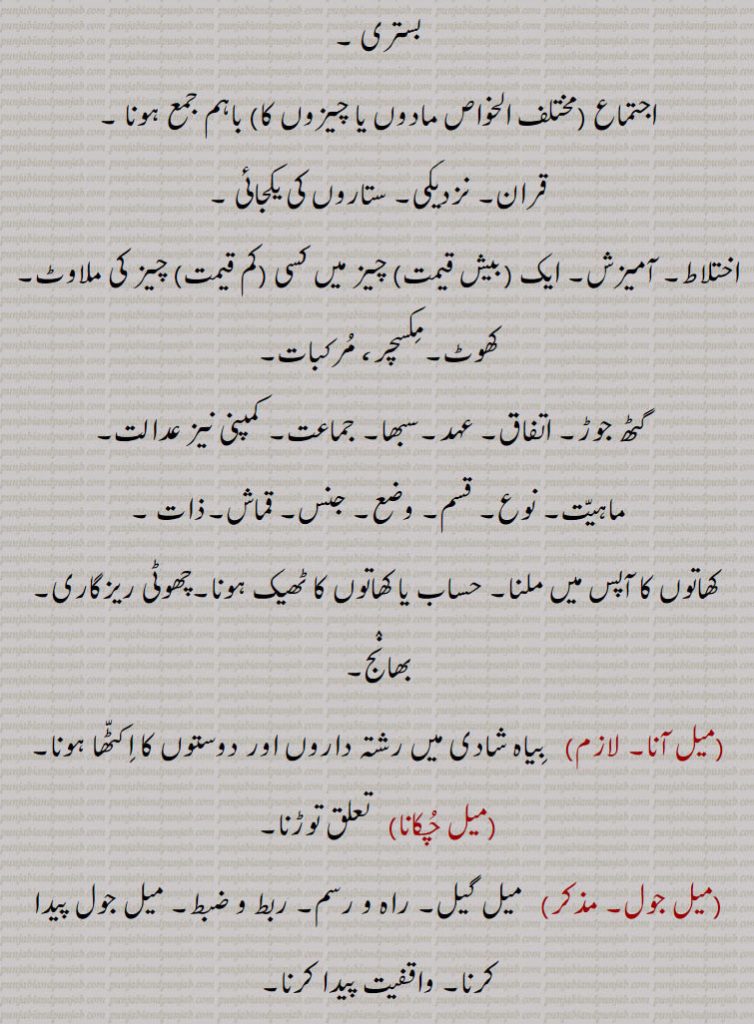 بستری ۔
اجتماع (مختلف الخواص مادوں یا چیزوں کا) باہم جمع ہونا ۔
قران۔ نزدیکی۔ ستاروں کی یکجائی ۔
اختلاط۔ آمیزش۔ ایک (بیش قیمت) چیز میں کسی (کم قیمت) چیز کی ملاوٹ۔
کھوٹ۔ مِکسچر، مُرکبات۔
گٹھ جوڑ۔ اتفاق۔ عہد۔ سبھا۔ جماعت۔ کمپنی نیز عدالت۔
ماہیّت۔ نوع۔ قسم۔ وضع۔ جنس۔ قماش۔ ذات ۔
کھاتوں کا آپس میں ملنا۔ حساب یا کھاتوں کا ٹھیک ہونا۔ چھوٹی ریزگاری۔
بھانْج۔
(میل آنا۔ لازم) بِیاہ شادی میں رشتہ داروں اور دوستوں کا اِکٹّھا ہونا۔
(میل چُکانا) تعلق توڑنا۔
(میل جول۔ مذکر) میل گیل۔ راہ و رسم۔ ربط و ضبط۔ میل جول پیدا
کرنا۔ واقفیت پیدا کرنا۔